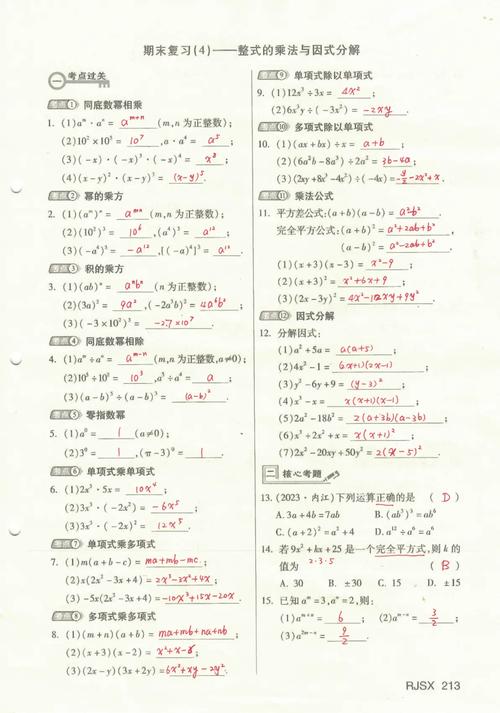 期末复习(4)——整式的乘法与因式分解
一 考点过关
考点① 同底数幂相乘
1. (1)aᵐ·aⁿ= aᵐ⁺ⁿ (m,n为正整数);
(2)10²×10⁵= 10⁷ ,a·a⁴= a⁵ ;
(3)(-x)·(-x)³·(-x)⁴= x⁸ ;
(4)(x-y)²·(x-y)³= (x-y)⁵.
考点② 幂的乘方
2. (1)(aᵐ)ⁿ= aᵐⁿ (m,n为正整数);
(2)(10²)³= 10⁶ ,(a⁴)³= a¹² ;
(3)(-a⁴)³= -a¹² ,[(-a)⁴]³= a¹² .
考点③ 积的乘方
3. (1)(ab)ⁿ= aⁿbⁿ (n为正整数);
(2)(3a)²= 9a² ,(-2a³b)²= 4a⁶b² ;
(3)(-3×10²)³= -2.7×10⁷ .
考点④ 同底数幂相除
4. (1)aᵐ÷aⁿ= aᵐ⁻ⁿ (m,n为正整数,a≠0);
(2)10⁵÷10²= 10³ ,a⁵÷a⁴= a ;
(3)(a-b)⁵÷(a-b)³= (a-b)² .
考点⑤ 零指数幂
5. (1)a⁰= 1 (a≠0);
(2)3⁰= 1 ,(π-3)⁰= 1 .
考点⑥ 单项式乘单项式
6. (1)2x³·5x= 10x⁴ ;
(2)3x³·(-2x²)= -6x⁵ ;
(3)3x³·(-2x)²= 12x⁵ .
考点⑦ 单项式乘多项式
7. (1)m(a+b-c)= ma+mb-mc ;
(2)x(2x²-3x+4)= 2x³-3x²+4x ;
(3)-5x(2x²-3x+4)= -10x³+15x²-20x .
考点⑧ 多项式乘多项式
8. (1)(m+n)(a+b)= ma+mb+na+nb ;
(2)(x+3)(x-2)= x²+x-6 ;
(3)(2x-y)(3x+2y)= 6x²+xy-2y² .
考点⑨ 单项式除以单项式
9. (1)12x³÷3x= 4x² ;
(2)6x³y÷(-3x²)= -2xy .
考点⑩ 多项式除以单项式
10. (1)(ax+bx)÷x= a+b ;
(2)(6a²b-8a³)÷2a²= 3b-4a ;
(3)(2xy+8x³-4x²)÷(-4x)= -y/2-2x²+x .
考点⑪ 乘法公式
11. 平方差公式:(a+b)(a-b)= a²-b² ;
完全平方公式:(a+b)²= a²+2ab+b² ,
(a-b)²= a²-2ab+b² ;
(1)(x+3)(x-3)= x²-9 ;
(2)(x+3)²= x²+6x+9 ;
(3)(2x-3y)²= 4x²-12xy+9y² .
考点⑫ 因式分解
12. 分解因式:
(1)a²+5a= a(a+5) ;
(2)4x²-1= (2x+1)(2x-1) ;
(3)y²-6y+9= (y-3)² ;
(4)x³-x= x(x+1)(x-1) ;
(5)2a²-18b²= 2(a+3b)(a-3b) ;
(6)x³+2x²+x= x(x+1)² ;
(7)2x²-20xy+50y²= 2(x-5y)² .
二 核心考题
13. (2023·内江)下列运算正确的是 ( D )
A. 3a+4b=7ab B. (ab³)³=ab⁶
C. (a+2)²=a²+4 D. a¹²÷a⁶=a⁶
14. 若9x²+kx+25是一个完全平方式,则k的
值为 2·3·5 ( B )
A. 30 B. ±30 C. 15 D. ±15
15. 已知aᵐ=3,aⁿ=2,则:
(1)aᵐ⁺ⁿ= 6 ; (2)aᵐ⁻ⁿ= 3/2 ;
(3)a²ᵐ⁻ⁿ= 9/2 .
RJSX 213